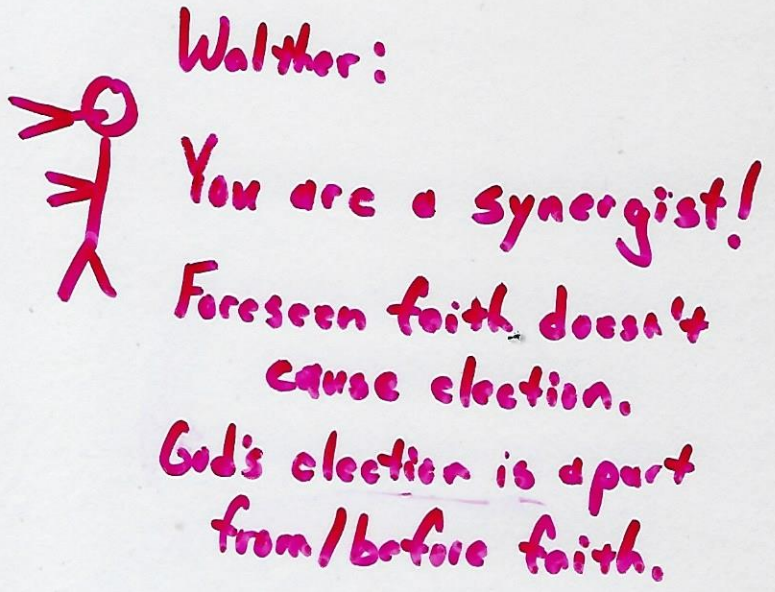 Walther:
You are a synergist!
Foreseen faith doesn't
cause election.
God's election is apart
from/before faith.